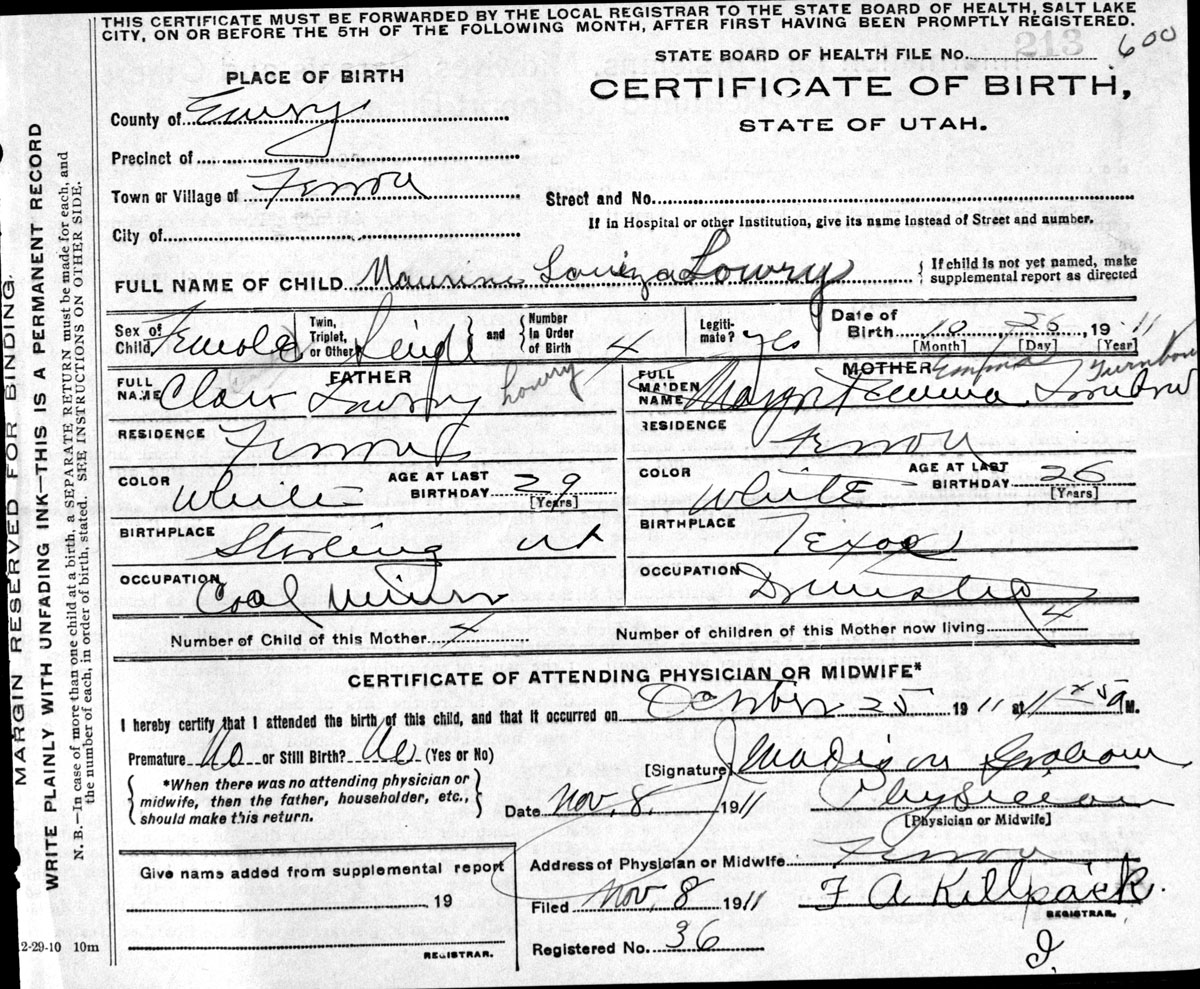 THIS CERTIFICATE MUST BE FORWARDED BY THE LOCAL REGISTRAR TO THE STATE BOARD OF HEALTH, SALT LAKE
CITY, ON OR BEFORE THE 5TH OF THE FOLLOWING MONTH, AFTER FIRST HAVING BEEN PROMPTLY REGISTERED.
STATE BOARD OF HEALTH FILE No. 213 600
PLACE OF BIRTH
CERTIFICATE OF BIRTH,
STATE OF UTAH.
County of Emery
Precinct of
Town or Village of Ferron
Street and No.
If in Hospital or other Institution, give its name instead of Street and number.
City of
FULL NAME OF CHILD Maurine Louiza Lowry
If child is not yet named, make
supplemental report as directed
Sex of
Child, Female
Twin,
Triplet,
or Other Single
and
Number
in Order
of Birth 4
Legiti-
mate? yes
Date of
Birth 10 26 19 11
[Month] [Day] [Year]
FATHER
FULL
NAME Clair Lowry Lowry
MOTHER Emma Turnbow
FULL
MAIDEN
NAME Emma
RESIDENCE Ferron
RESIDENCE Ferron
COLOR White
AGE AT LAST
BIRTHDAY 29
[Years]
COLOR White
AGE AT LAST
BIRTHDAY 26
[Years]
BIRTHPLACE Sterling ut
BIRTHPLACE Texas
OCCUPATION Coal Miner
OCCUPATION Domestic
Number of Child of this Mother 4
Number of children of this Mother now living 4
CERTIFICATE OF ATTENDING PHYSICIAN OR MIDWIFE*
I hereby certify that I attended the birth of this child, and that it occurred on October 25 1911 at 11 25 a M.
Premature No or Still Birth? No (Yes or No)
*When there was no attending physician or
midwife, then the father, householder, etc.,
should make this return.
[Signature] Madison Graham
Date Nov. 8. 1911 Physician
[Physician or Midwife]
Give name added from supplemental report
19
REGISTRAR.
Address of Physician or Midwife Ferron
Filed Nov. 8 1911 F A Killpack.
REGISTRAR.
Registered No. 36
MARGIN RESERVED FOR BINDING.
WRITE PLAINLY WITH UNFADING INK—THIS IS A PERMANENT RECORD
N. B.—In case of more than one child at a birth, a SEPARATE RETURN must be made for each, and
the number of each, in order of birth, stated. SEE INSTRUCTIONS ON OTHER SIDE.
2-29-10 10m